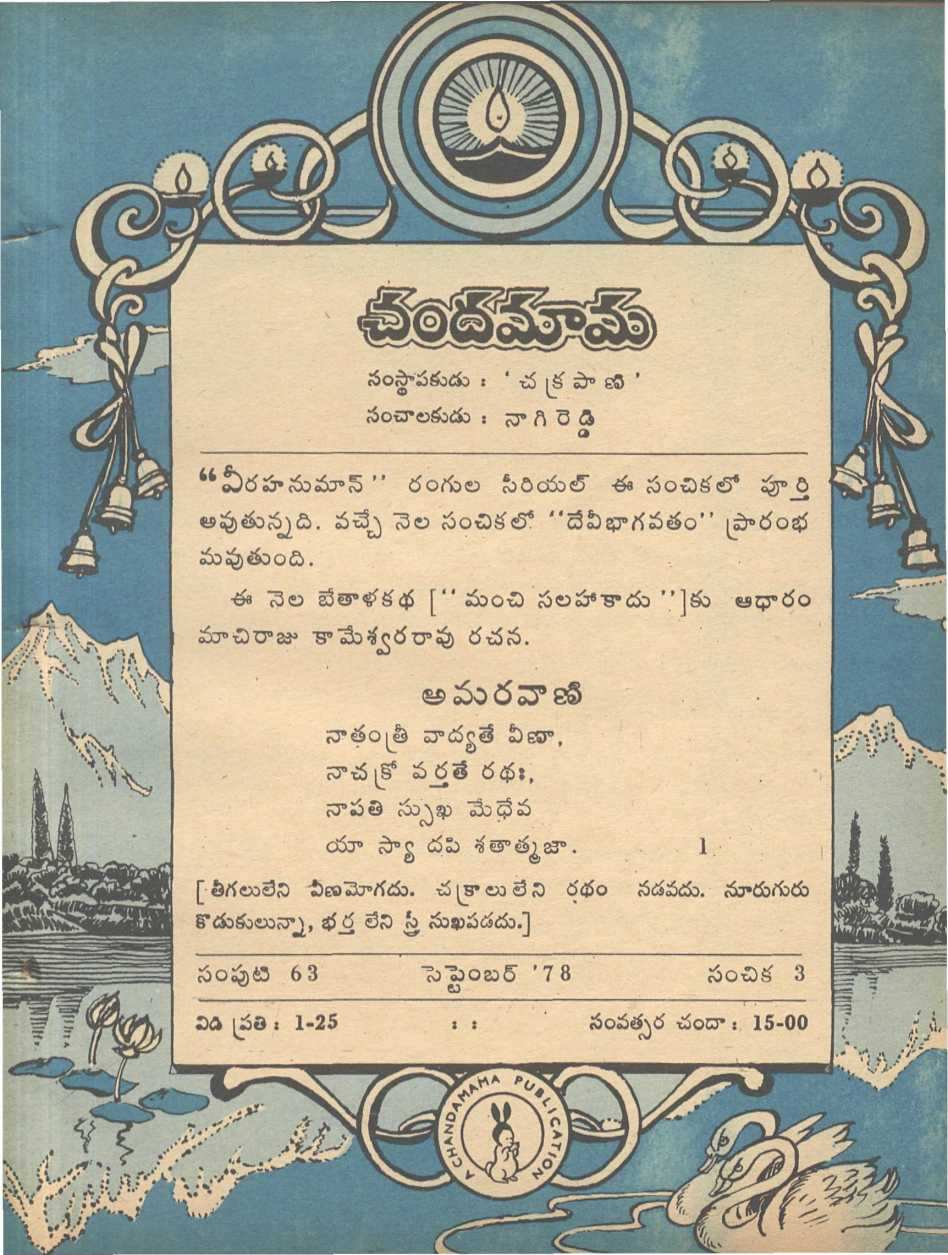 చందమామ
సంస్థాపకుడు : ' చక్రపాణి '
సంచాలకుడు : నాగిరెడ్డి
“వీరహనుమాన్’’ రంగుల సీరియల్ ఈ సంచికలో పూర్తి
అవుతున్నది. వచ్చే నెల సంచికలో ‘‘దేవీభాగవతం’’ ప్రారంభ
మవుతుంది.
ఈ నెల బేతాళకథ [‘‘ మంచి సలహాకాదు ’’]కు ఆధారం
మాచిరాజు కామేశ్వరరావు రచన.
అమరవాణి
నాతంత్రీ వాద్యతే వీణా,
నాచక్రో వర్తతే రథః,
నాపతి స్సుఖ మేధేవ
యా స్యా దపి శతాత్మజా. 1
[తీగలులేని వీణమోగదు. చక్రాలులేని రథం నడవదు. నూరుగురు
కొడుకులున్నా, భర్త లేని స్త్రీ సుఖపడదు.]
సంపుటి 63 సెప్టెంబర్ '78 సంచిక 3
విడి ప్రతి : 1-25 : : సంవత్సర చందా : 15-00
A CHANDAMAMA PUBLICATION